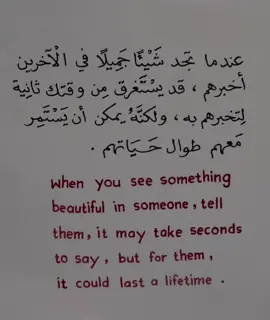 عندما تجد شَيْئًا جَمِيلًا في الْآخرين
أخبرهم ، قد يسْتَغرق مِن وقتك ثانِية
لِتخبرهم به ، ولكنَّهُ يمكن أن يَسْتَمِر
مَعهم طوال حَيَاتهم .
When you see something
beautiful in someone, tell
them, it may take seconds
to say, but for them,
it could last a lifetime.